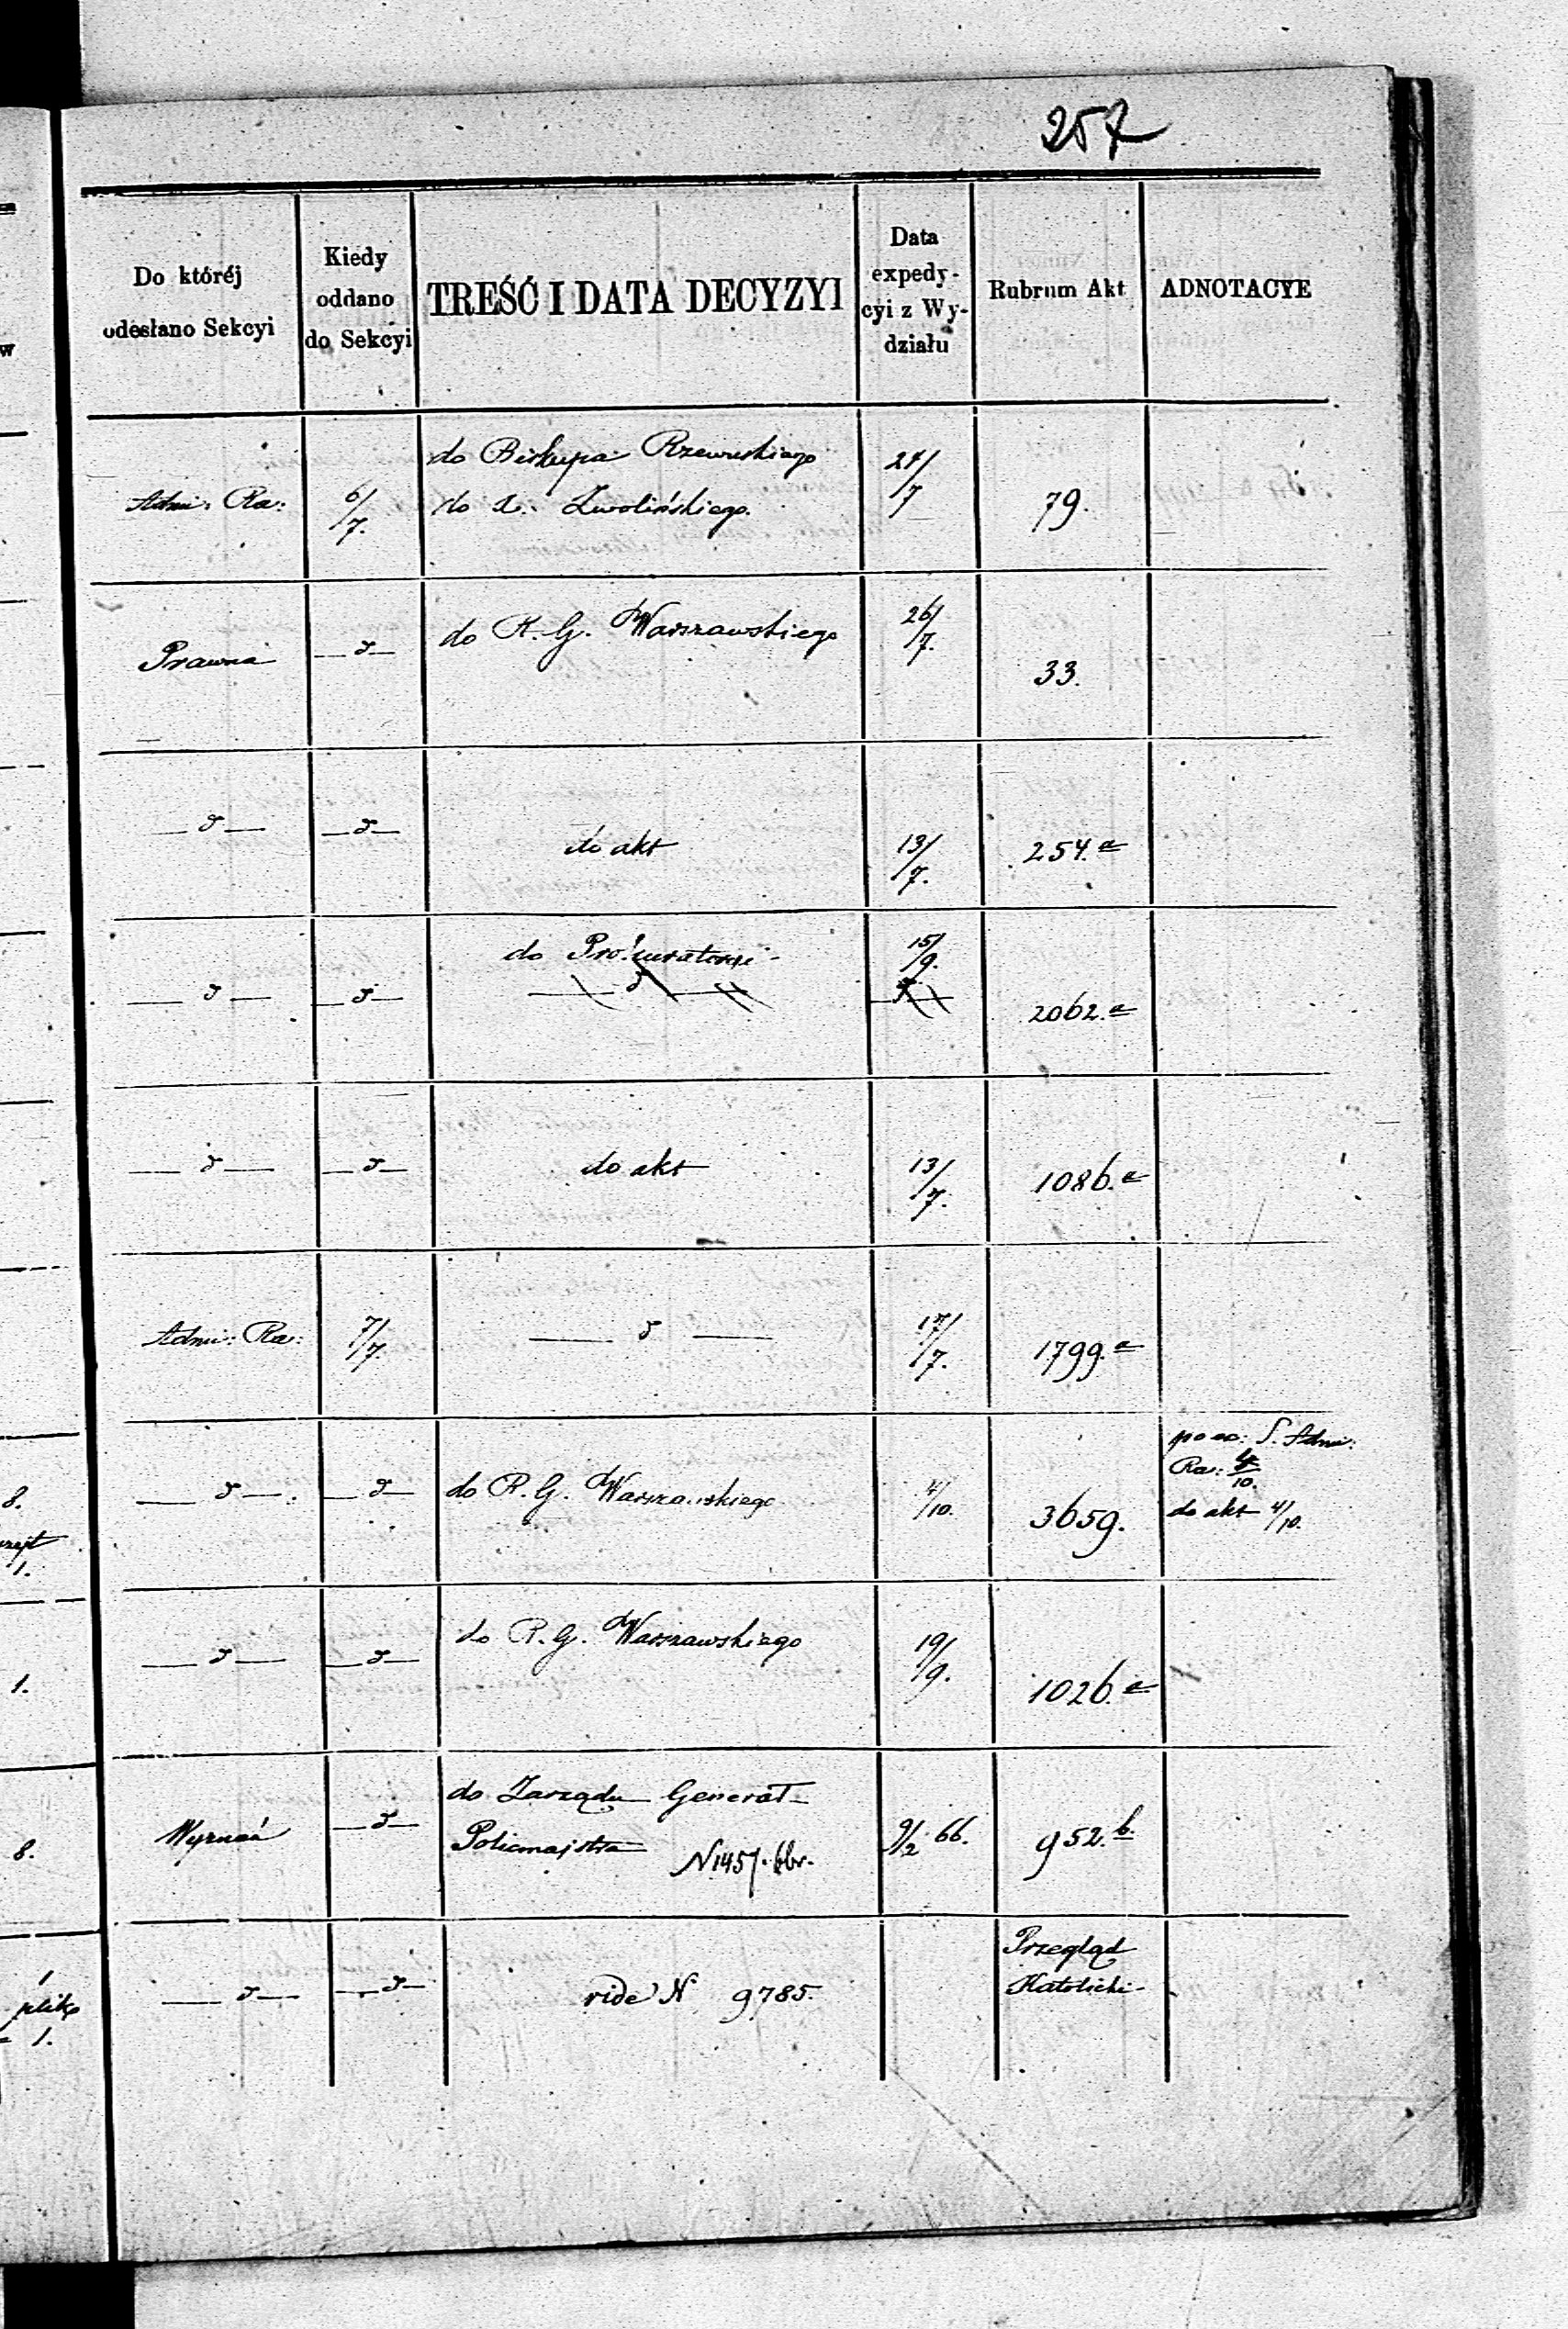 257
Do któréj
odesłano Sekcyi
Kiedy
oddano
do Sekcyi
TREŚĆ I DATA DECYZYI
Data
expedy-
cyi z Wy-
działu
Rubrum Akt
ADNOTACYE
Admi: Ra:
6/7.
do Biskupa Rzewuskiego
do X. Zwolińskiego.
21/7
79.
Prawna
— d —
do R. G. Warszawskiego
26/7.
33.
— d —
— d —
do akt
13/7.
254.a
— d —
— d —
do Prokuratoryi
— d —
15/9.
2062.a
— d —
— d —
do akt
13/7.
1086.a
Admi: Ra:
7/7.
— d —
17/7.
1799.a
— d —
— d —
do R. G. Warszawskiego
4/10.
3659.
po ex: S. Admi:
Ra: 4/10.
do akt 4/10.
— d —
— d —
do R. G. Warszawskiego
19/9.
1026.a
Wyznań
— d —
do Zarządu Generał
Policmajstra
N 1457.
9/2 66.
952.b.
— d —
— d —
vide N 9785.
Przegląd
Katolicki
w
8.
1.
1.
8.
1.